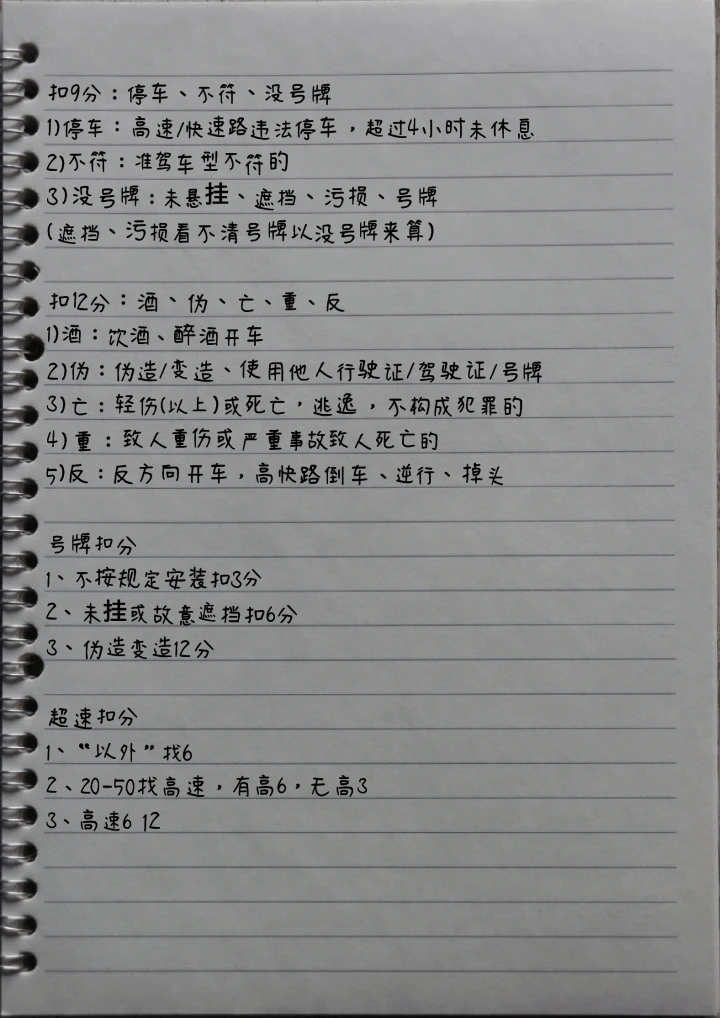 扣9分：停车、不符、没号牌
1)停车：高速/快速路违法停车，超过4小时未休息
2)不符：准驾车型不符的
3)没号牌：未悬挂、遮挡、污损、号牌
(遮挡、污损看不清号牌以没号牌来算)
扣12分：酒、伪、亡、重、反
1)酒：饮酒、醉酒开车
2)伪：伪造/变造、使用他人行驶证/驾驶证/号牌
3)亡：轻伤(以上)或死亡，逃逸，不构成犯罪的
4)重：致人重伤或严重事故致人死亡的
5)反：反方向开车，高快路倒车、逆行、掉头
号牌扣分
1、不按规定安装扣3分
2、未挂或故意遮挡扣6分
3、伪造变造12分
超速扣分
1、“以外”找6
2、20-50找高速，有高6，无高3
3、高速6 12